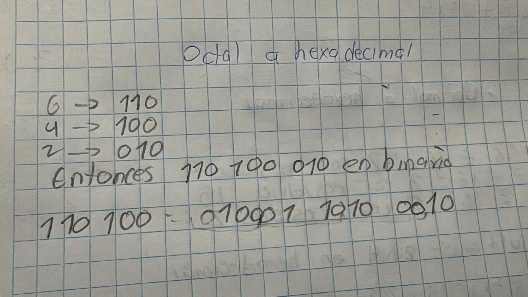 Octal a hexadecimal
6 -> 110
4 -> 100
2 -> 010
Entonces 110 100 010 en binario
110 100 - 010001 1010 0010